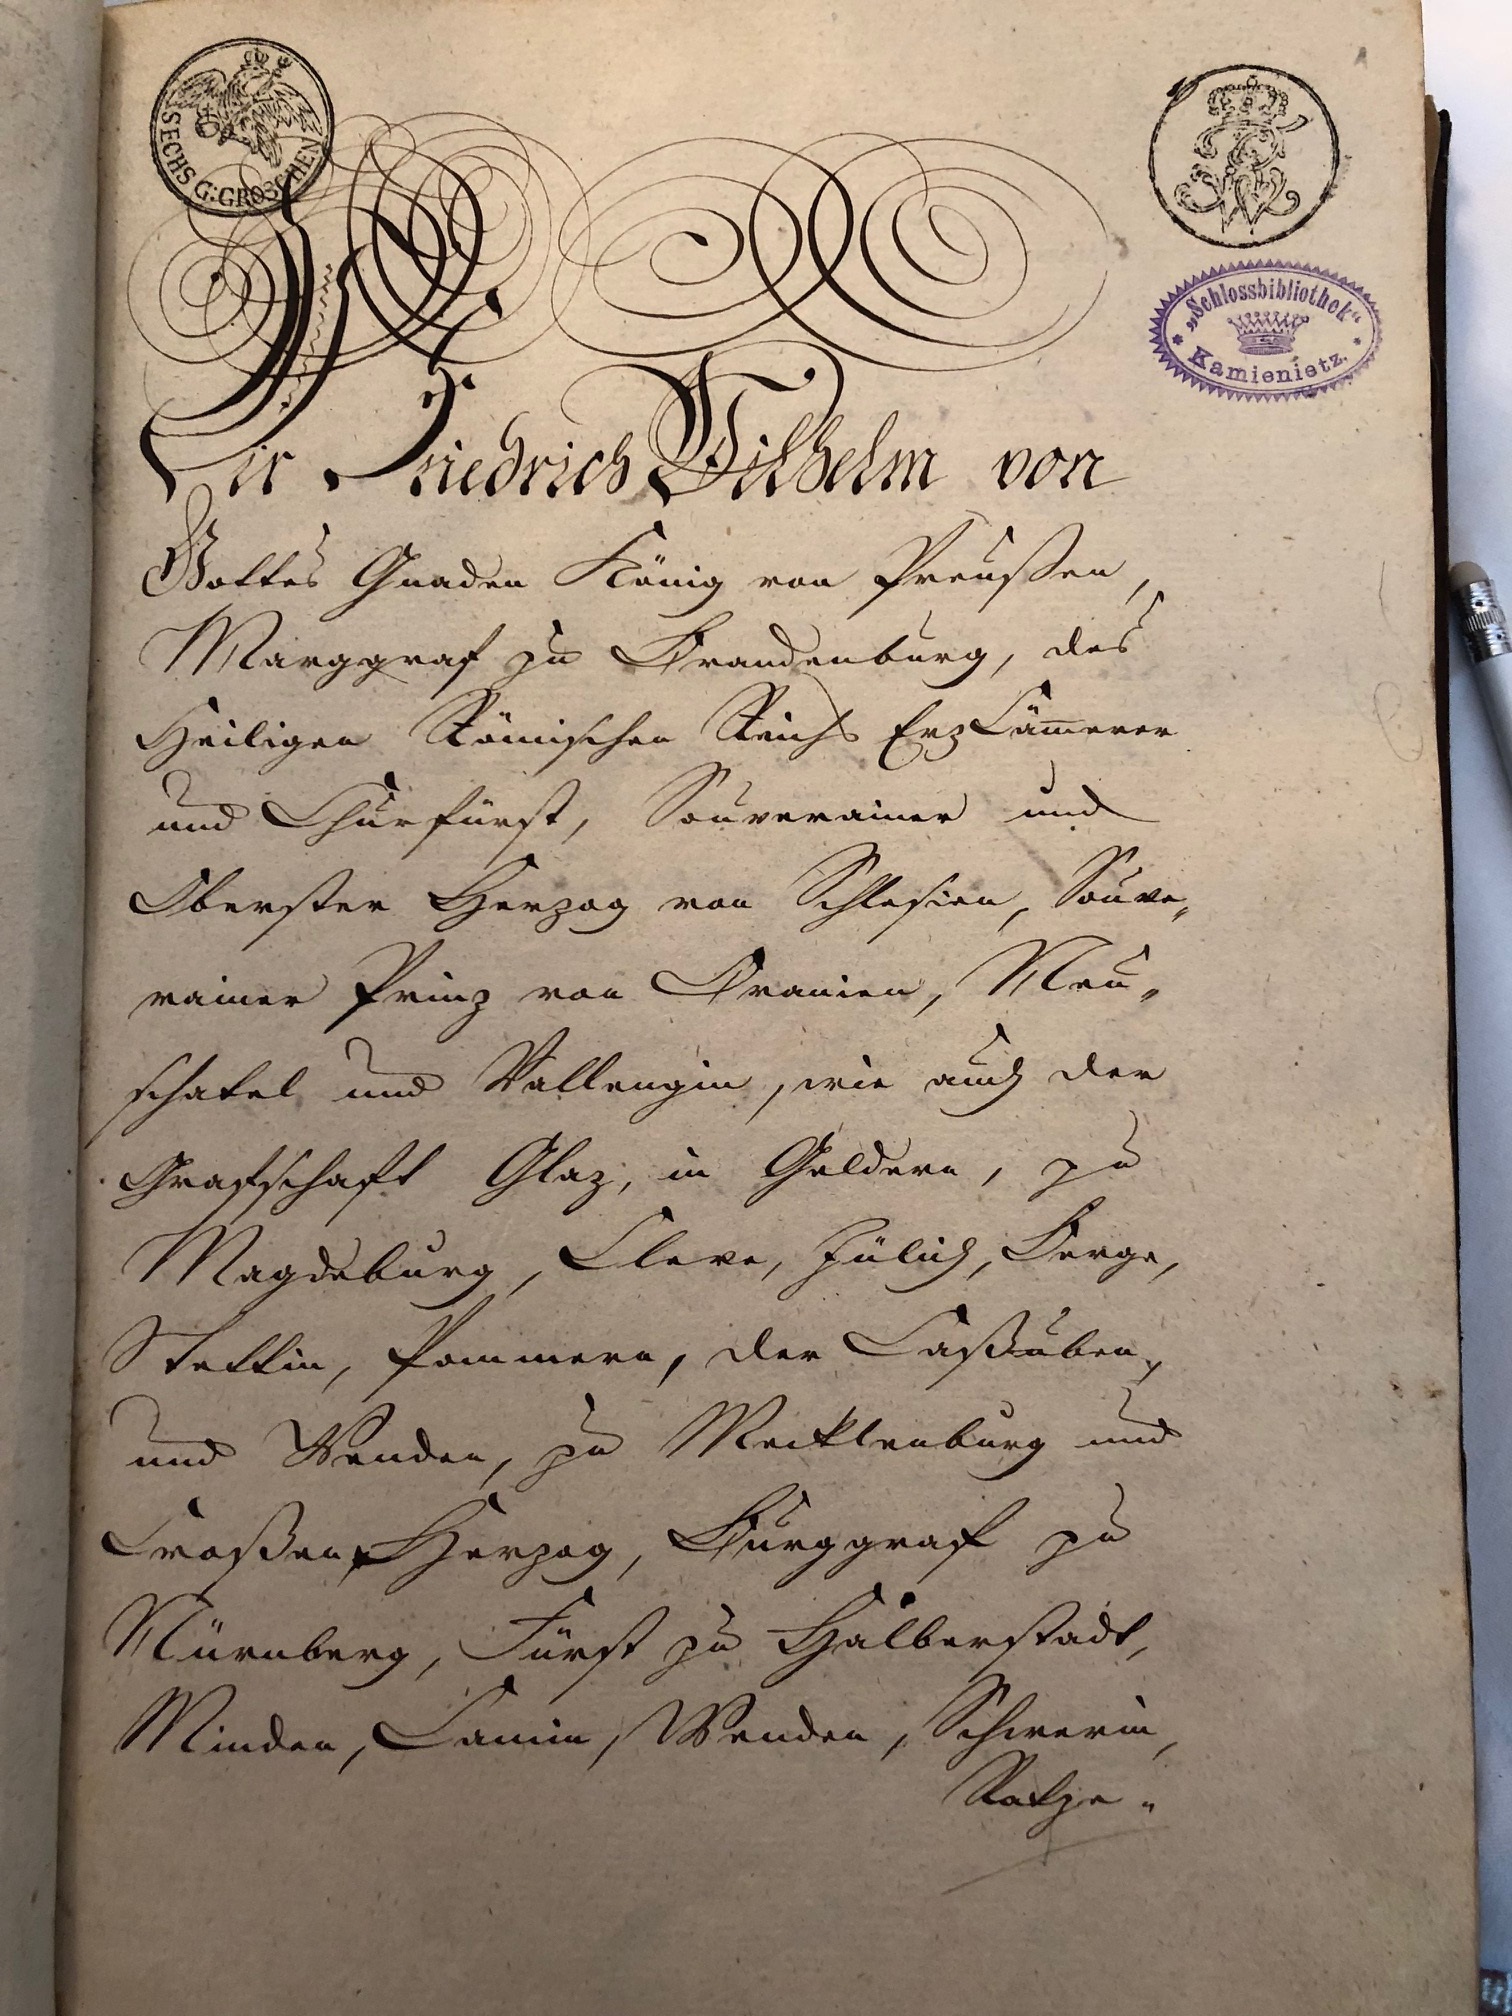 SECHS G:GROSCHEN
FWR
„Schlossbibliothek“
Kamienietz.
Wir Friedrich Wilhelm von
Gottes Gnaden König von Preußen,
Marggraf zu Brandenburg, des
Heiligen Römischen Reichs Erz Cäm̅erer
und Churfürst, Souverainer und
Oberster Herzog von Schlesien, Souve„
rainer Prinz von Oranien, Neu„
schatel und Vallengin, wie auch der
Grafschaft Glaz, in Geldern, zu
Magdeburg, Cleve, Jülich, Berge,
Stettin, Pommern, der Caßuben,
und Wenden, zu Mecklenburg und
Croßen, Herzog, Burggraf zu
Nürnberg, Fürst zu Halberstadt,
Minden, Camin, Wenden, Schwerin,
Ratze„